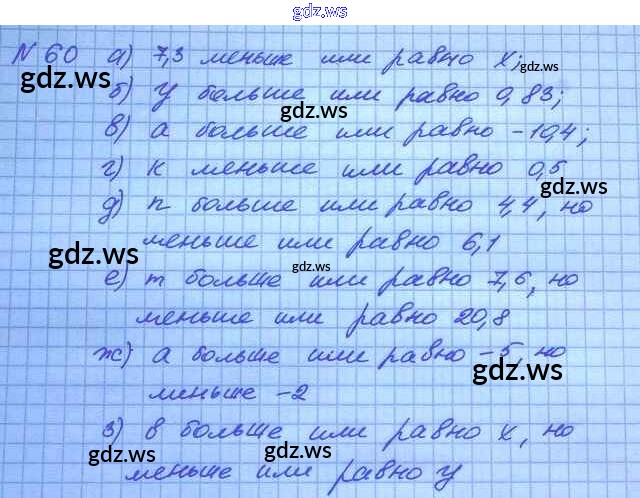 gdz.ws
N 60 а) 7,3 меньше или равно х;
gdz.ws
gdz.ws
б) y больше или равно 0,83;
gdz.ws
в) а больше или равно -10,4;
г) к меньше или равно 0,5
gdz.ws
д) n больше или равно 4,4, но
меньше или равно 6,1
gdz.ws
gdz.ws
е) m больше или равно 7,6, но
меньше или равно 20,8
ж) а больше или равно -5, но
gdz.ws
меньше -2
з) в больше или равно х, но
gdz.ws
gdz.ws
меньше или равно y